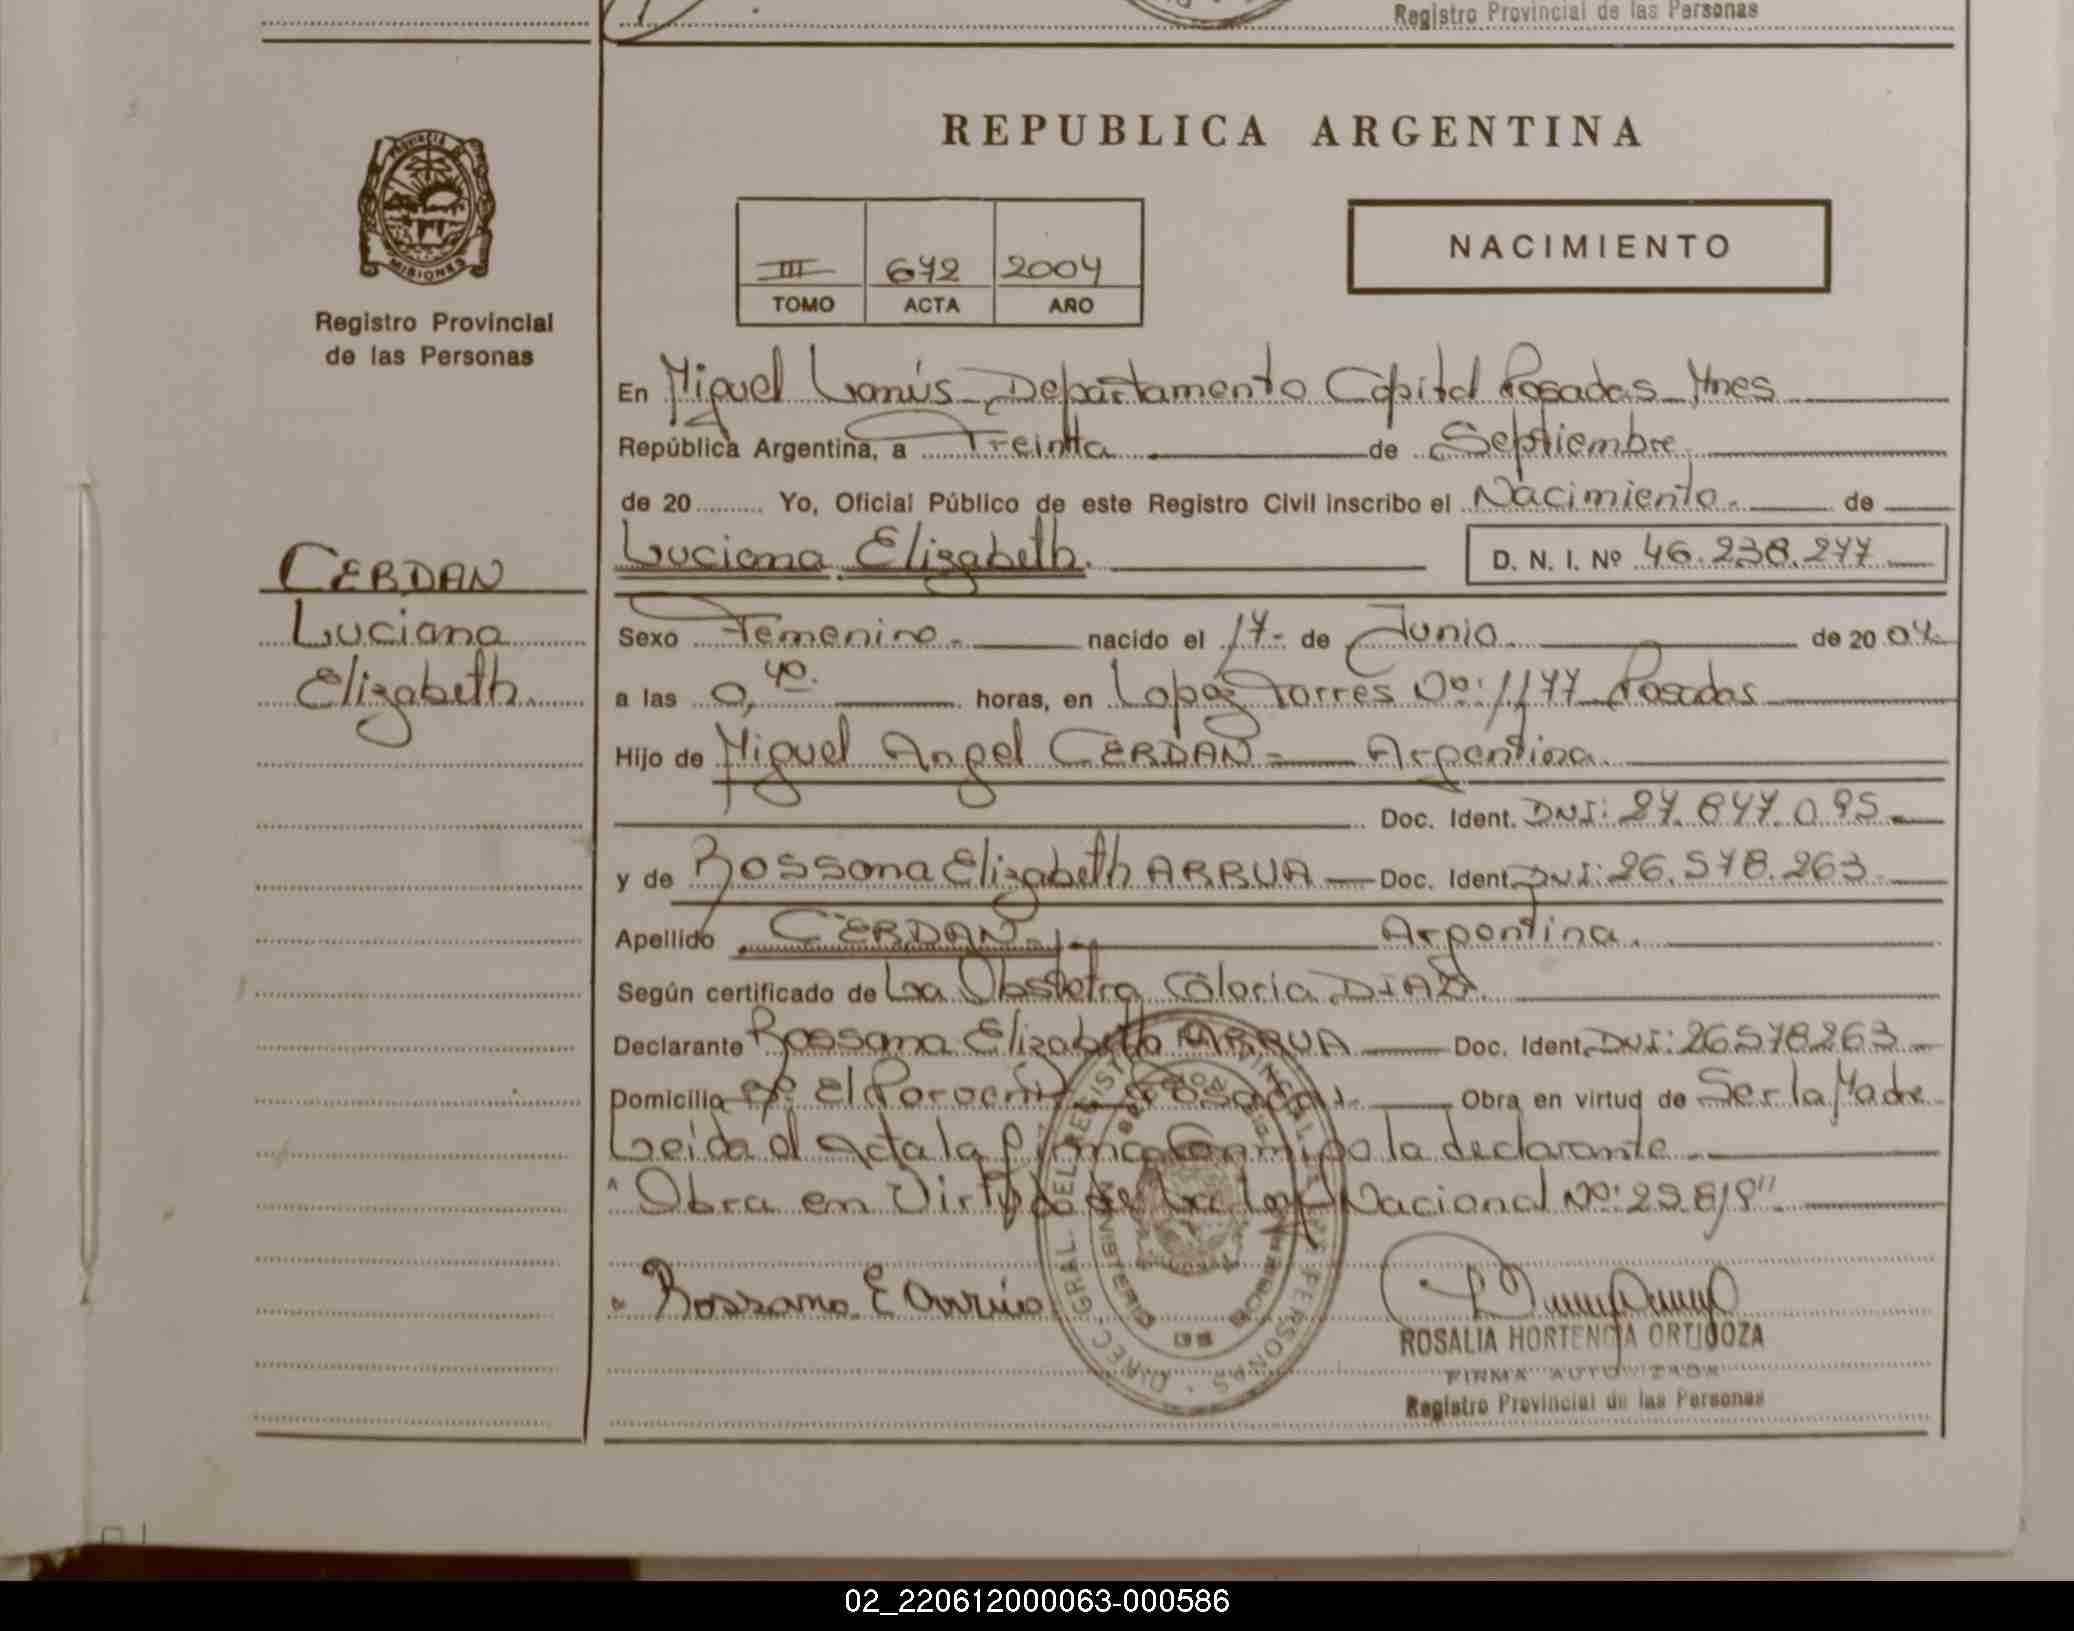 Registro Provincial de las Personas
PROVINCIA DE
MISIONES
Registro Provincial
de las Personas
CERDAN
Luciana
Elizabeth.
REPUBLICA ARGENTINA
III 672 2004
TOMO ACTA AÑO
NACIMIENTO
En Miguel Lanús Departamento Capital Posadas Mnes
República Argentina, a Treinta de Septiembre
de 20 Yo, Oficial Público de este Registro Civil inscribo el Nacimiento. de
Luciana Elizabeth. D. N. I. Nº 46.238.277
Sexo Femenino. nacido el 17 de Junio. de 2004
a las 0,40. horas, en Lopez Torres Nº: 1177 Posadas
Hijo de Miguel Angel CERDAN= Argentina.
Doc. Ident. DNI: 27.847.095
y de Rossana Elizabeth ARRUA Doc. Ident. DNI: 26.578.263
Apellido CERDAN Argentina.
Según certificado de La Obstetra Gloria DIAZ.
Declarante Rossana Elizabeth ARRUA Doc. Ident. DNI: 26578263
Domicilio El Porvenir Posadas. Obra en virtud de Ser la Madre
Leida el acta la firma Conmigo la declarante
"Obra en Virtud de La Ley Nacional Nº: 25.819"
Rossana E Arrua
DIREC. GRAL. DEL REGISTRO PROVINCIAL DE LAS PERSONAS
ROSALIA HORTENCIA ORTIGOZA
FIRMA AUTORIZADA
Registro Provincial de las Personas
02_220612000063-000586